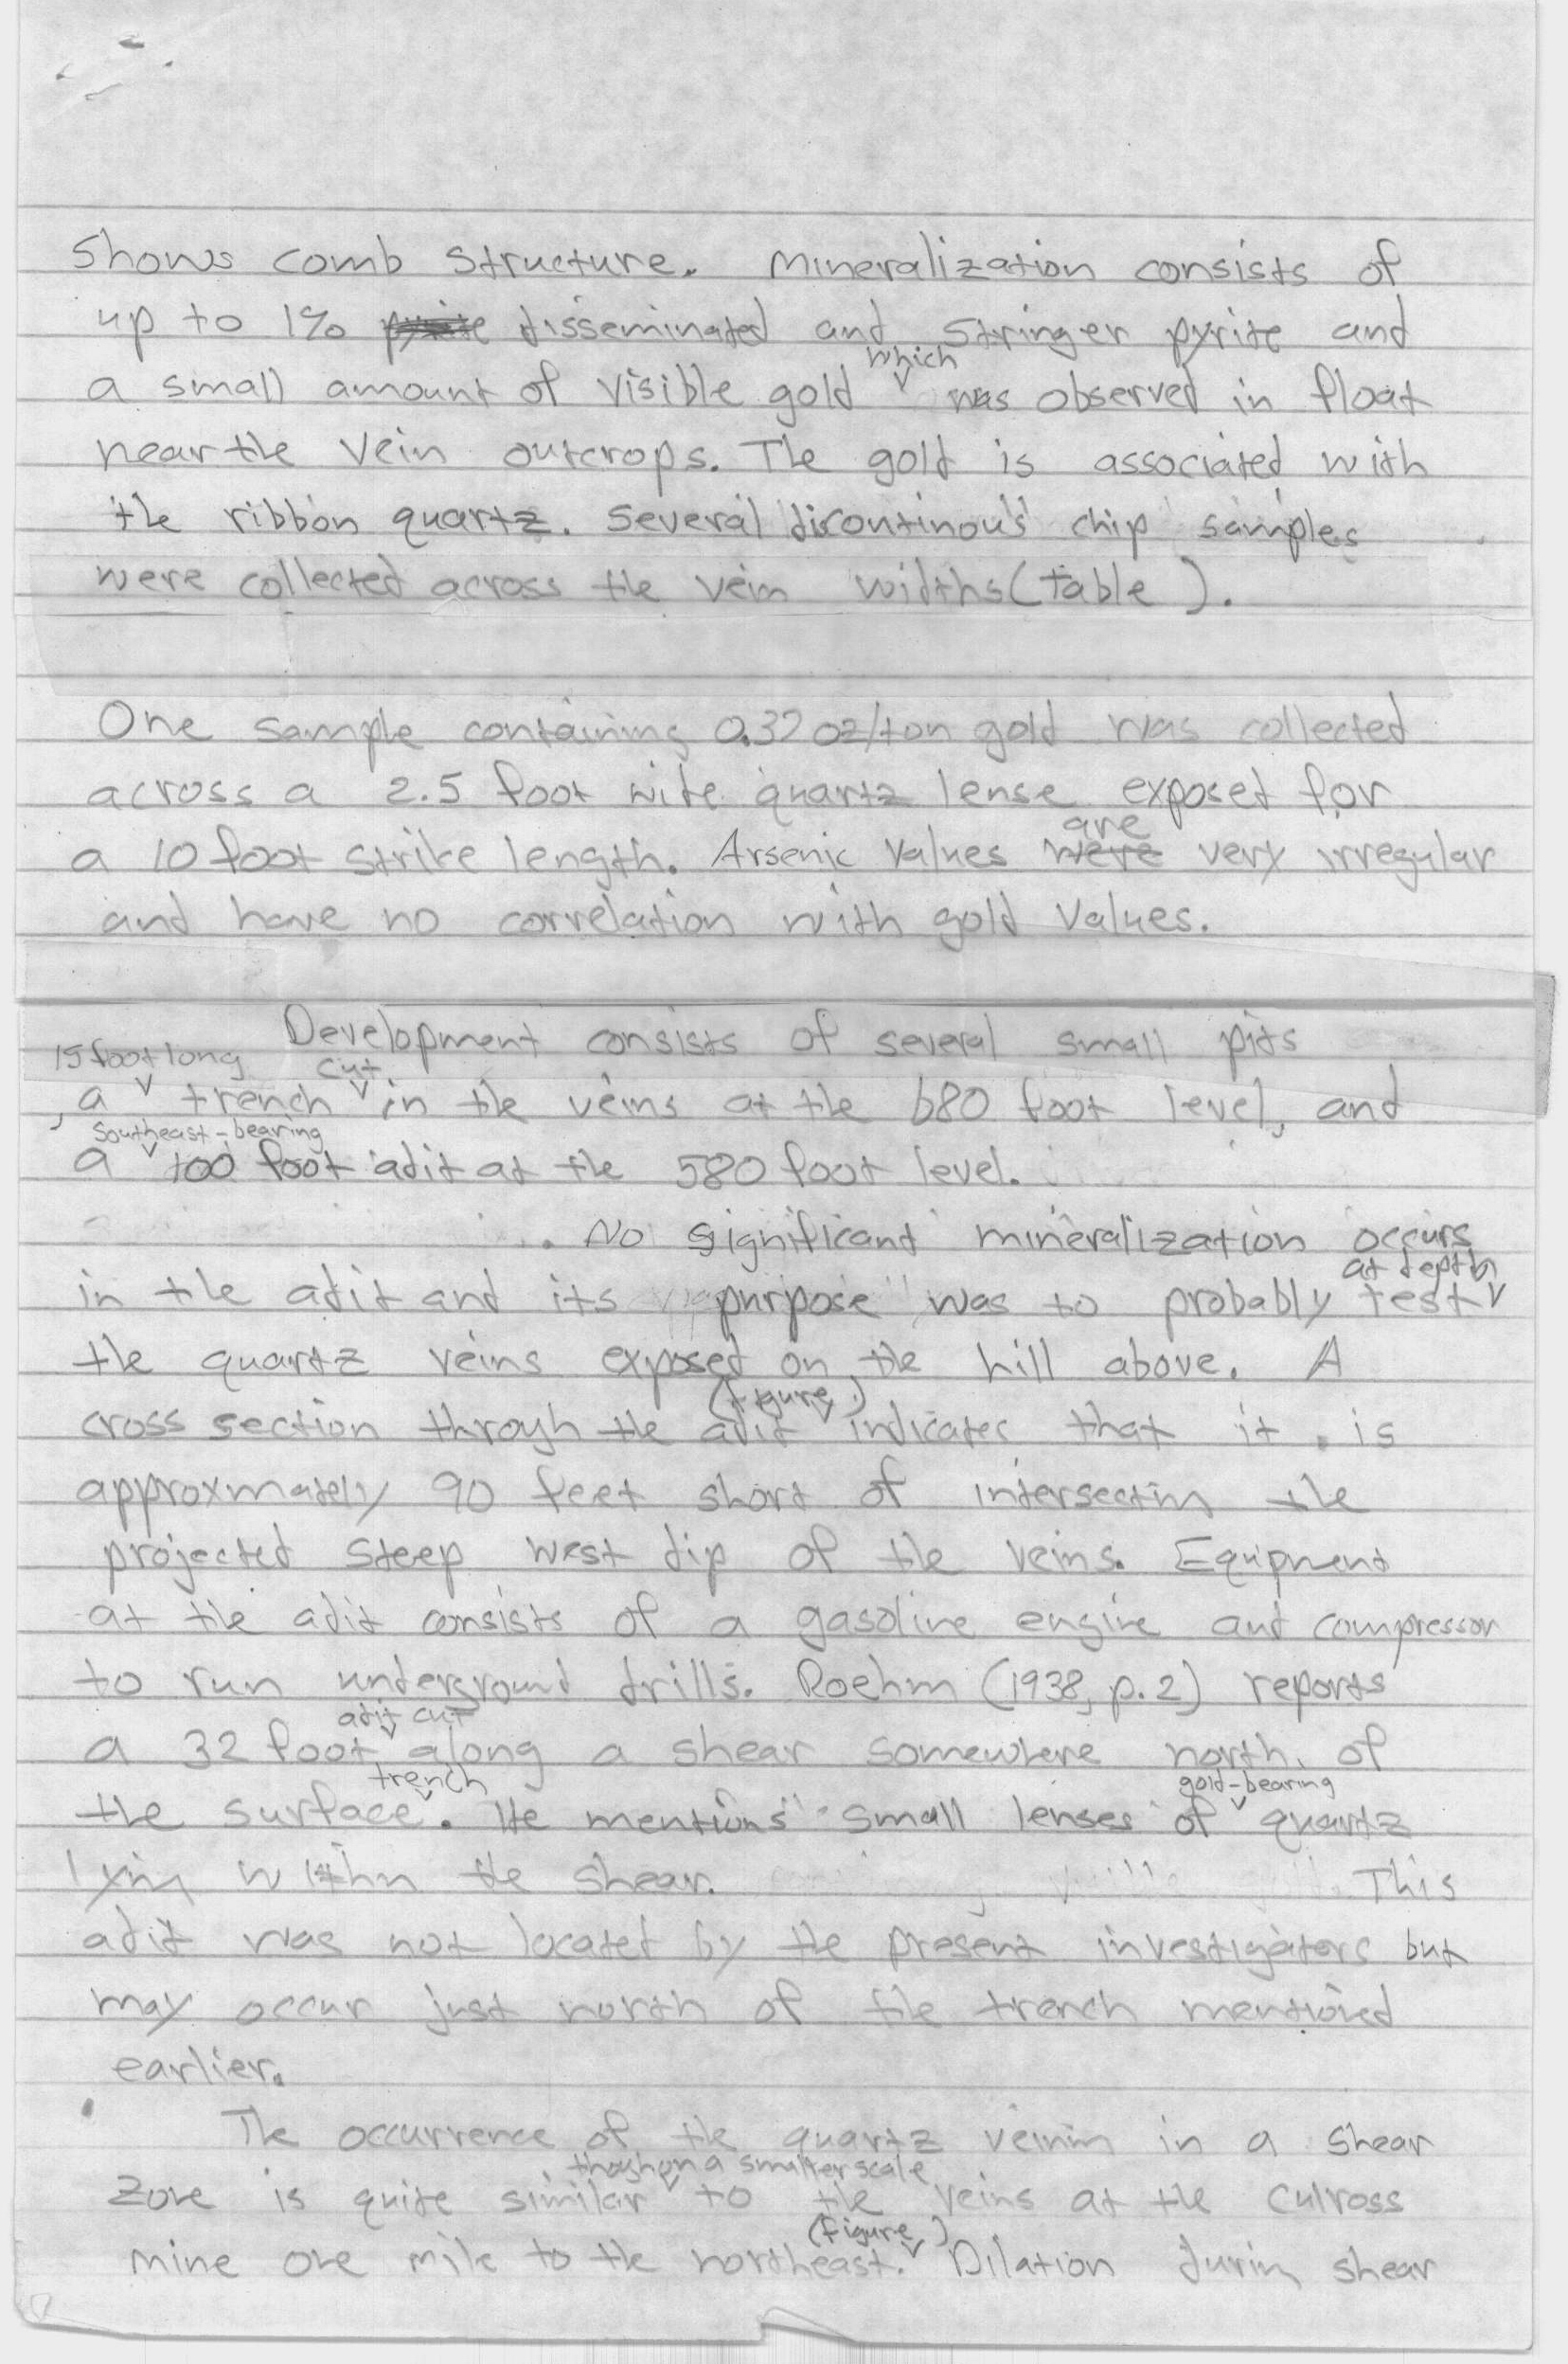 shows comb structure. Mineralization consists of
up to 1% pyrite disseminated and stringer pyrite and
which
a small amount of visible gold was observed in float
near the vein outcrops. The gold is associated with
the ribbon quartz. Several discontinous chip samples
were collected across the vein widths (table ).
One sample containing 0.32 oz/ton gold was collected
across a 2.5 foot wide quartz lense exposed for
are
a 10 foot strike length. Arsenic values were very irregular
and have no correlation with gold values.
Development consists of several small pits
15 foot long cut
, a trench in the veins at the 680 foot level, and
southeast-bearing
a 100 foot adit at the 580 foot level.
. No significant mineralization occurs
at depth
in the adit and its purpose was to probably test
the quartz veins exposed on the hill above. A
(figure )
cross section through the adit indicates that it is
approxmately 90 feet short of intersecting the
projected steep west dip of the veins. Equipment
at the adit consists of a gasoline engine and compressor
to run underground drills. Roehm (1938, p.2) reports
adit cut
a 32 foot along a shear somewhere north of
trench gold-bearing
the surface. He mentions small lenses of quartz
lying within the shear. This
adit was not located by the present investigators but
may occur just north of the trench mentioned
earlier.
The occurrence of the quartz veining in a shear
though on a smaller scale
zone is quite similar to the veins at the Culross
(figure )
mine one mile to the northeast. Dilation during shear